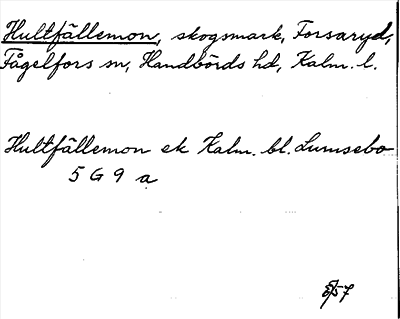 Hultfällemon, skogsmark, Forsaryd,
Fågelfors sn, Handbörds hd, Kalm. l.
Hultfällemon ek Kalm. bl. Lumsebo
5 G 9 a
57